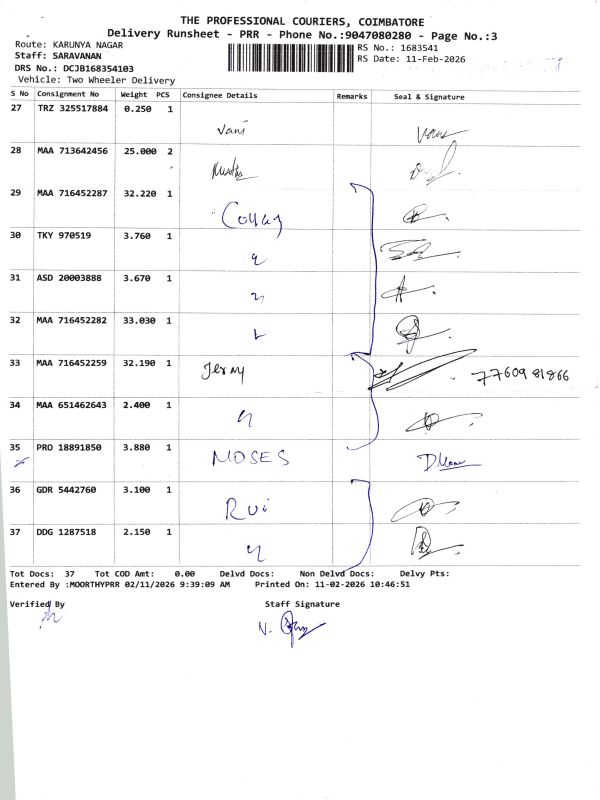 THE PROFESSIONAL COURIERS, COIMBATORE
Delivery Runsheet - PRR - Phone No.:9047080280 - Page No.:3
Route: KARUNYA NAGAR
Staff: SARAVANAN
DRS No.: DCJB168354103
Vehicle: Two Wheeler Delivery
RS No.: 1683541
RS Date: 11-Feb-2026
S No Consignment No Weight PCS Consignee Details Remarks Seal & Signature
27 TRZ 325517884 0.250 1 Vani
28 MAA 713642456 25.000 2
29 MAA 716452287 32.220 1
30 TKY 970519 3.760 1
31 ASD 20003888 3.670 1
32 MAA 716452282 33.030 1
33 MAA 716452259 32.190 1 Jerny 77609 81866
34 MAA 651462643 2.400 1
35 PRO 18891850 3.880 1 MOSES
36 GDR 5442760 3.100 1 Rui
37 DDG 1287518 2.150 1
Tot Docs: 37 Tot COD Amt: 0.00 Delvd Docs: Non Delvd Docs: Delvy Pts:
Entered By :MOORTHYPRR 02/11/2026 9:39:09 AM Printed On: 11-02-2026 10:46:51
Verified By Staff Signature